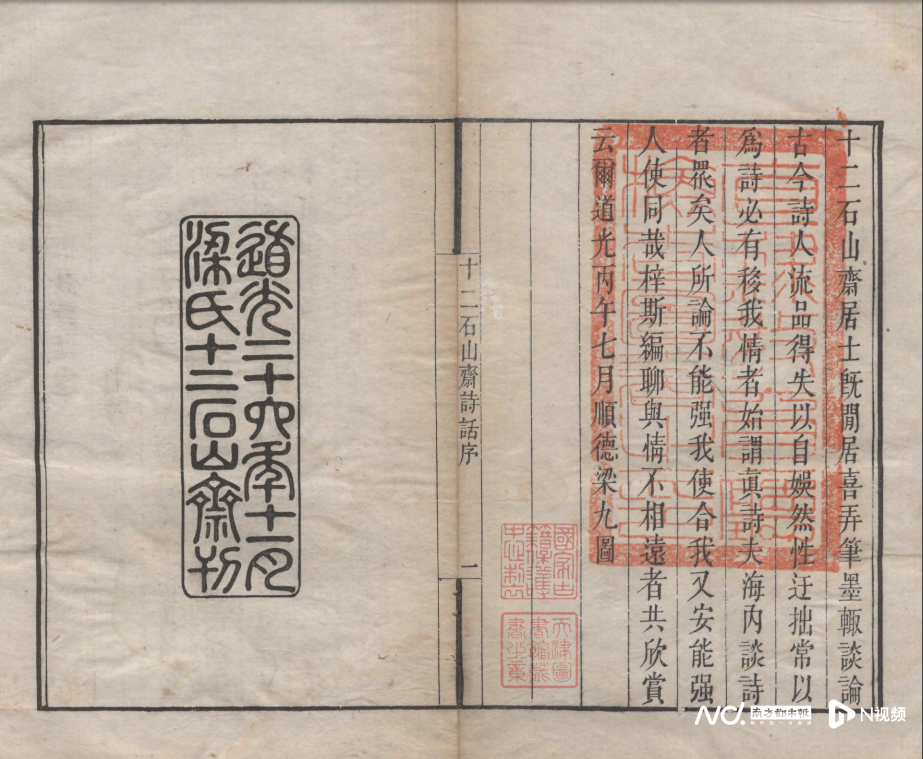 十二石山齋居士旣閒居喜弄筆墨輙談論
古今詩人流品得失以自娛然性迂拙常以
爲詩必有移我情者始謂眞詩夫海內談詩
者眾矣人所論不能强我使合我又安能强
人使同哉梓斯編聊與情不相遠者共欣賞
云爾道光丙午七月順德梁九圖
國家古
籍保護
天津圖
書館藏
書之章
十二石山齋詩話序
一
道光二十六年十一月
梁氏十二石山齋刊
南方都市報
N视频